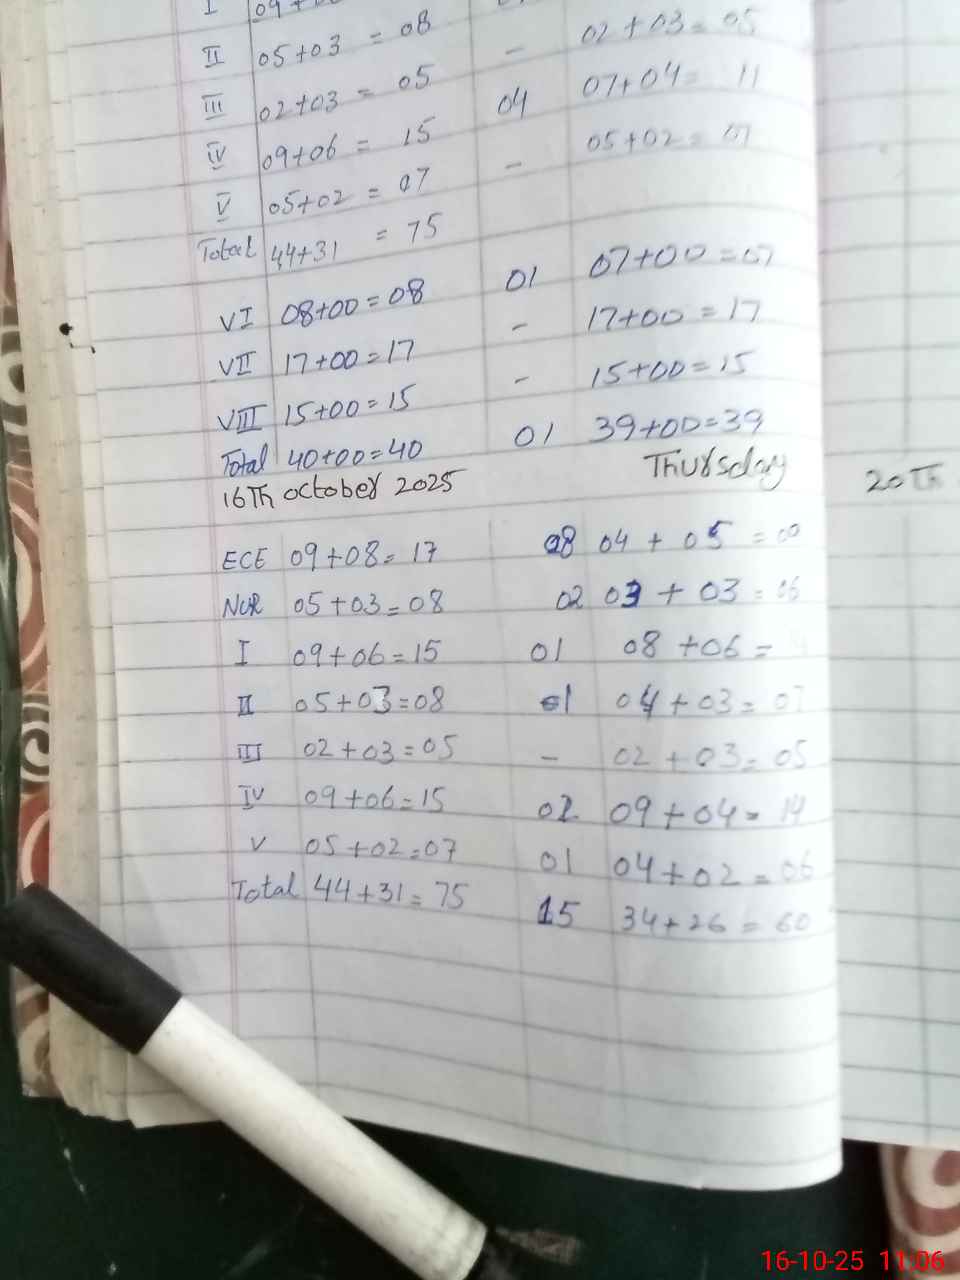 I 09+0
II 05+03 = 08 - 02+03=05
III 02+03 = 05 04 07+04= 11
IV 09+06 = 15 - 05+02=07
V 05+02 = 07
Total 44+31 = 75
VI 08+00=08 01 07+00=07
VII 17+00=17 - 17+00=17
VIII 15+00=15 - 15+00=15
Total 40+00=40 01 39+00=39
16Th october 2025 Thursday
20Th
ECE 09+08=17 08 04 + 05 =
NUR 05+03=08 02 03 + 03 = 06
I 09+06=15 01 08 +06 =
II 05+03=08 01 04+03= 07
III 02+03=05 - 02+03=05
IV 09+06=15 02 09+04= 14
V 05+02=07 01 04+02=06
Total 44+31=75 15 34+26=60
16-10-25 11:06